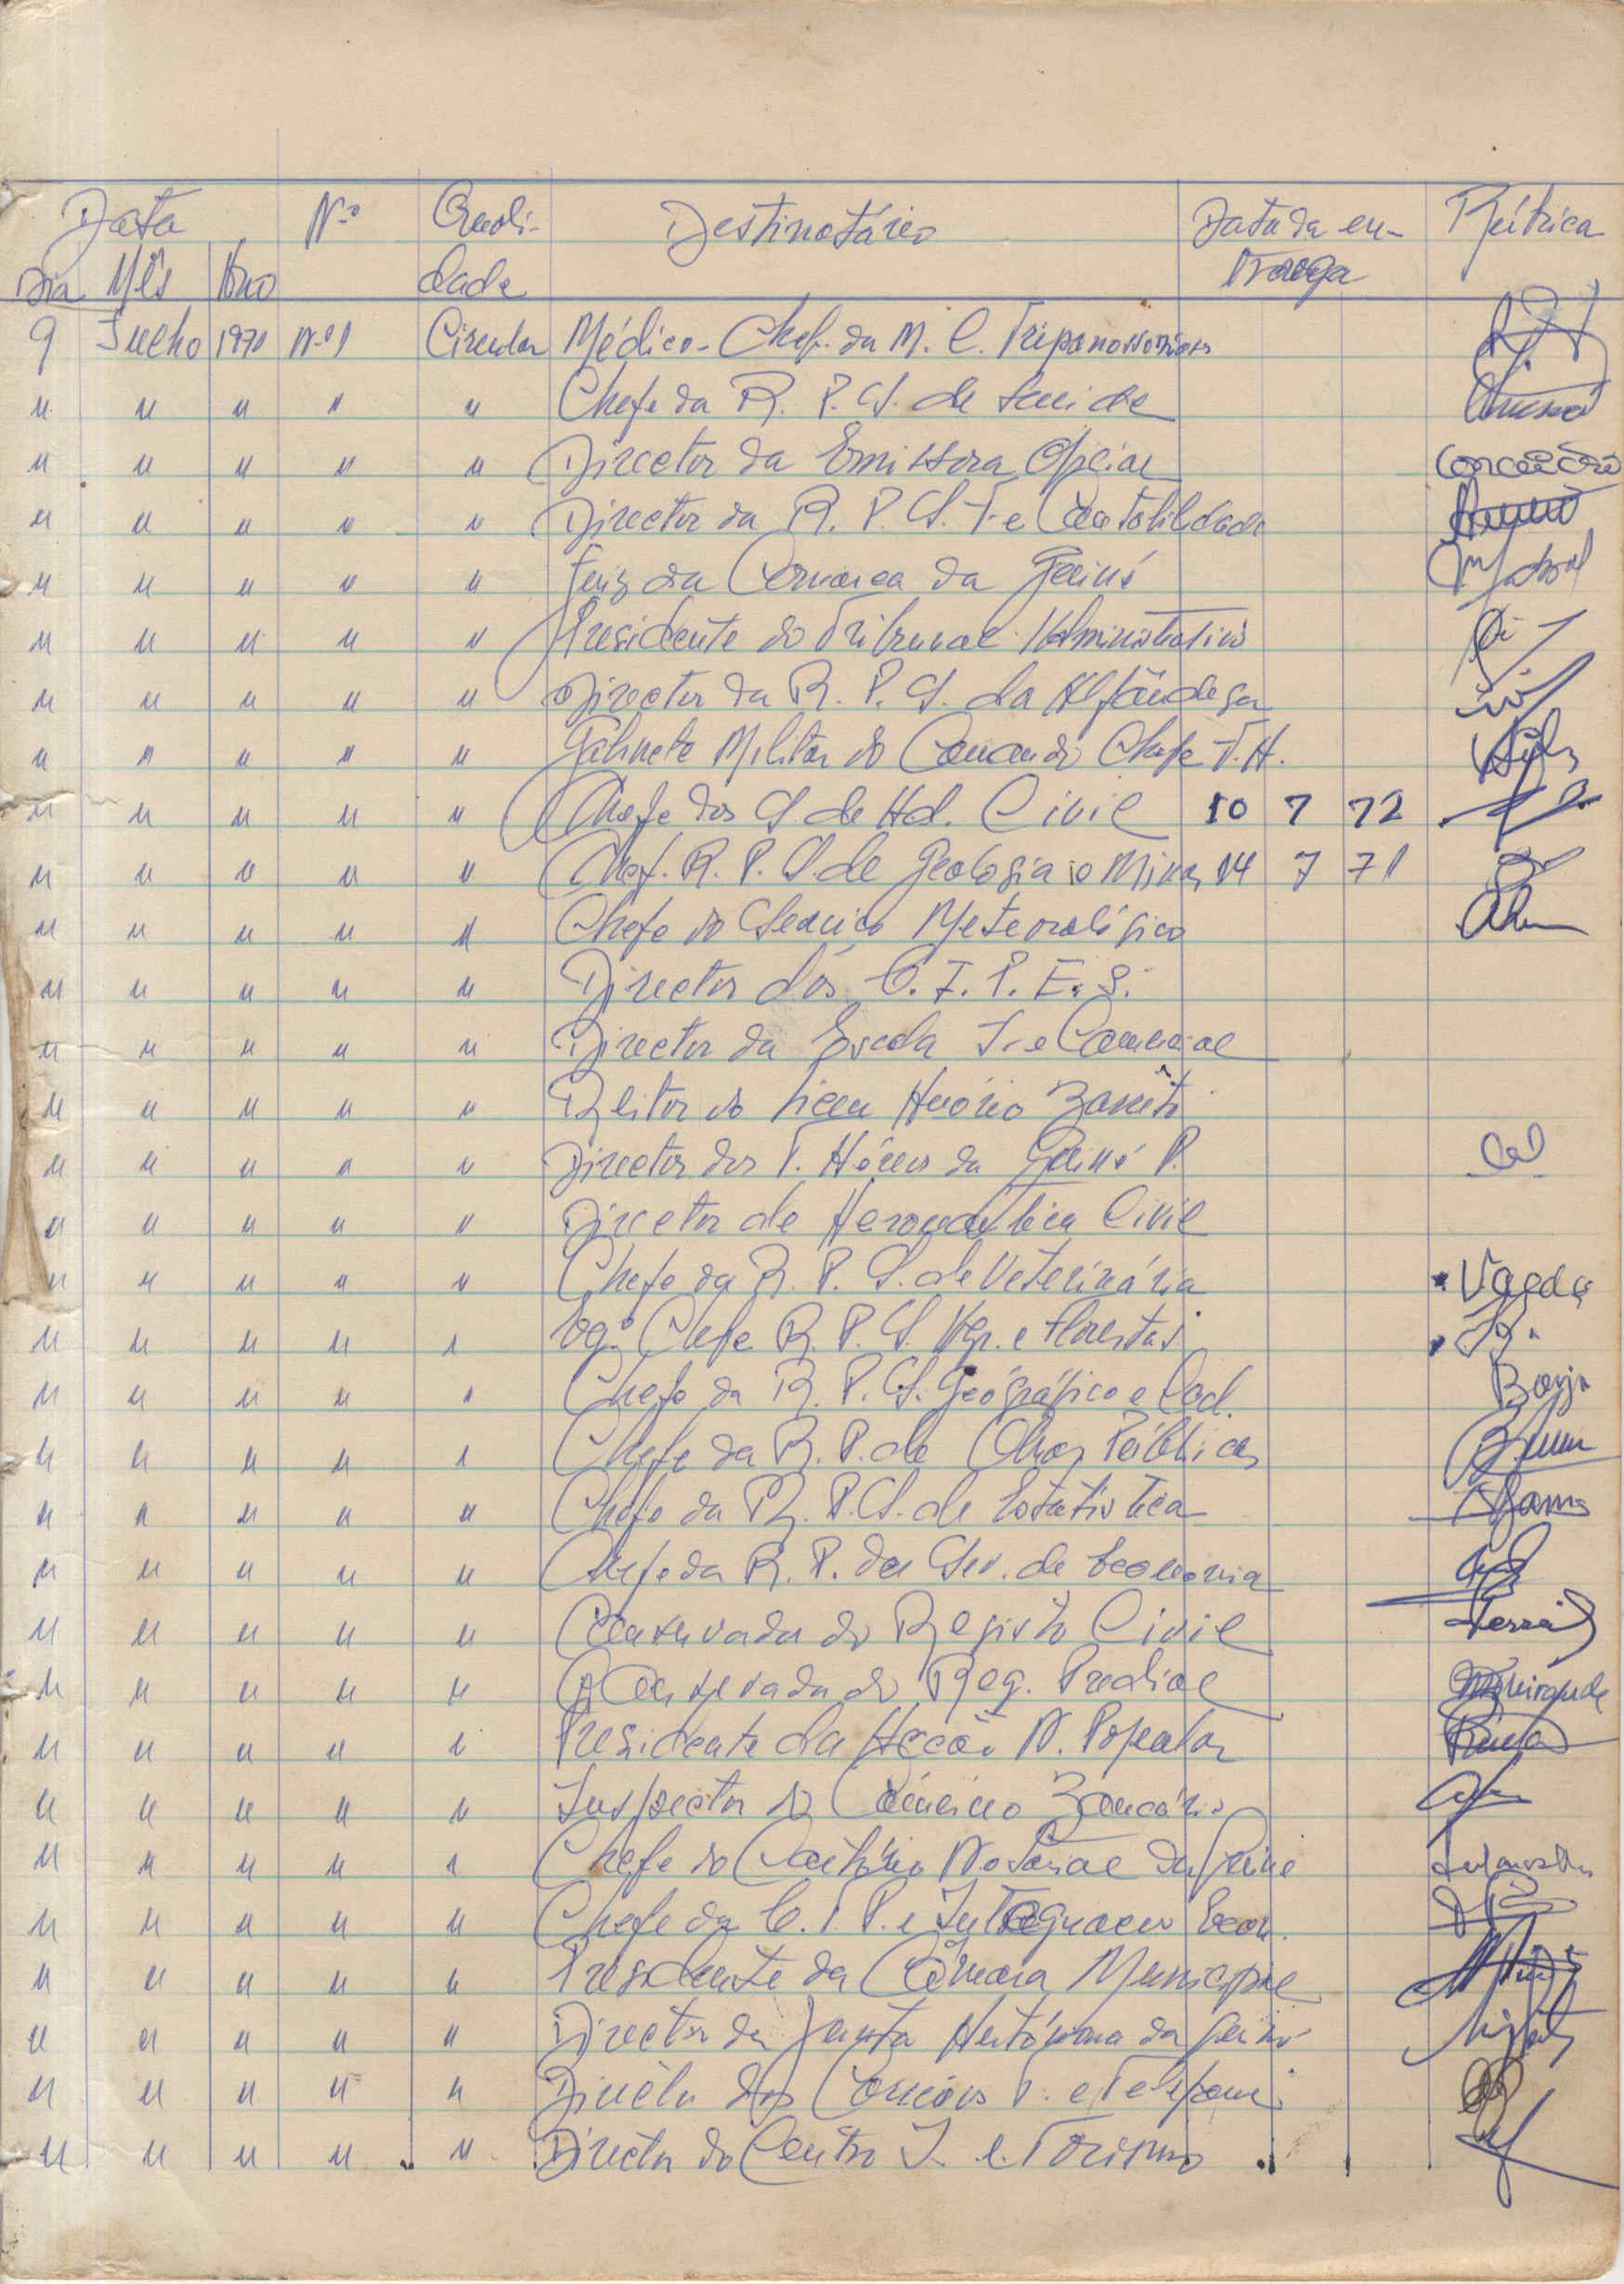 Data Nº Quali- Destinatário Data da en- Rúbrica
Dia Mês Ano dade trega
9 Julho 1971 Nº 1 Circular Médico-Chef. da M. C. Tripanossomias
" " " " " Chefe da R. P. S. de Saúde
" " " " " Director da Emissora Oficial Conceição
" " " " " Director da R. P. S. F. e Contabilidade
" " " " " Juiz da Comarca da Guiné
" " " " " Presidente do Tribunal Administrativo
" " " " " Director da R. P. S. da Alfândega
" " " " " Gabinete Militar do Comando Chefe F. A.
" " " " " Chefe dos S. de Ad. Civil 10 7 72
" " " " " Chef. R. P. S. de Geologia e Minas 14 7 71
" " " " " Chefe do Serviço Meteorológico
" " " " " Director dos C. F. P. E. S.
" " " " " Director da Escola I. e Comercial
" " " " " Reitor do Liceu Honório Barreto
" " " " " Director dos T. Aéreos da Guiné P.
" " " " " Director de Aeronáutica Civil
" " " " " Chefe da R. P. S. de Veterinária
" " " " " Eng.º Chefe R. P. S. Agr. e Florestas
" " " " " Chefe da R. P. S. Geográfico e Cad. Borja
" " " " " Chefe da R. P. de Obras Públicas
" " " " " Chefe da R. P. S. de Estatística
" " " " " Chefe da R. P. dos Serv. de Economia
" " " " " Conservador do Registo Civil
" " " " " Conservador do Reg. Predial
" " " " " Presidente da Acção N. Popular
" " " " " Inspector do Comércio Bancário
" " " " " Chefe do Cartório Notarial da Guiné
" " " " " Chefe da C. T. P. e Integração Econ.
" " " " " Presidente da Câmara Municipal
" " " " " Director da Junta Autónoma da Guiné
" " " " " Director dos Correios T. e Telefone
" " " " " Director do Centro I. e Torismo